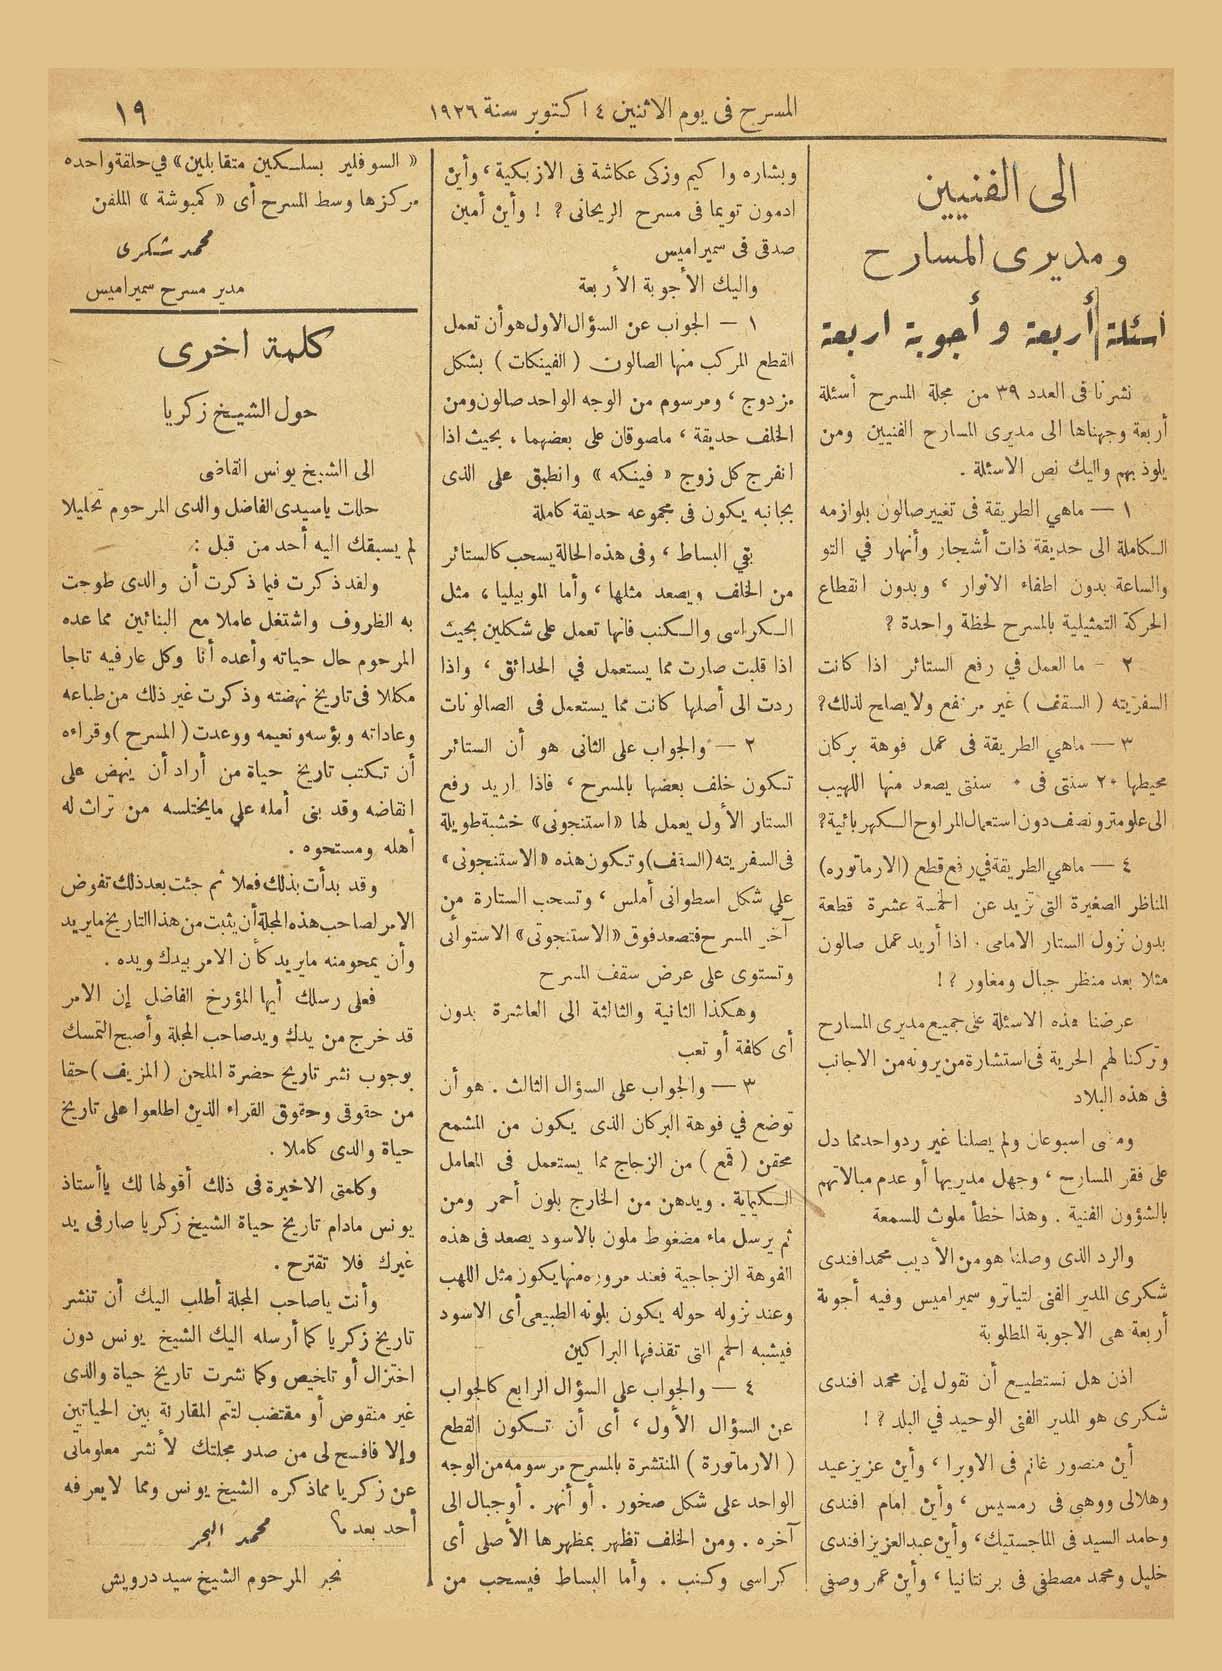 المسرح فى يوم الاثنين ٤ اكتوبر سنة ١٩٢٦
١٩
الى الفنيين
ومديرى المسارح
أسئلة أربعة وأجوبة اربعة
نشرنا فى العدد ٣٩ من مجلة المسرح أسئلة
أربعة وجهناها الى مديرى المسارح الفنيين ومن
يلوذ بهم واليك نص الاسئلة .
١ — ماهي الطريقة فى تغيير صالون بلوازمه
الكاملة الى حديقة ذات أشجار وأنهار في التو
والساعة بدون اطفاء الانوار ، وبدون انقطاع
الحركة التمثيلية بالمسرح لحظة واحدة ؟
٢ - ما العمل في رفع الستائر اذا كانت
السفريته ( السقف ) غير مرتفع ولا يصلح لذلك؟
٣ — ماهي الطريقة فى عمل فوهة بركان
محيطها ٢٠ سنتى فى سنتى يصعد منها اللهيب
الى علو متر ونصف دون استعمال المراوح الكهربائية؟
٤ — ماهي الطريقة في رفع قطع (الارماتوره)
المناظر الصغيرة التى تزيد عن الخمسة عشرة قطعة
بدون نزول الستار الامامى . اذا أريد عمل صالون
مثلا بعد منظر جبال ومغاور ؟!
عرضنا هذه الاسئلة على جميع مديرى المسارح
وتركنا لهم الحرية فى استشارة من يرونه من الاجانب
فى هذه البلاد
ومضى اسبوعان ولم يصلنا غير رد واحد مما دل
على فقر المسارح ، وجهل مديريها أو عدم مبالاتهم
بالشؤون الفنية . وهذا خطأ ملوث للسمعة
والرد الذى وصلنا هو من الأديب محمد افندى
شكرى المدير الفنى لتياترو سميراميس وفيه أجوبة
أربعة هى الاجوبة المطلوبة
اذن هل نستطيع أن نقول إن محمد افندى
شكرى هو المدير الفنى الوحيد في البلد ؟ !
أين منصور غانم فى الاوبرا ، وأين عزيز عيد
وهلالى ووهبى فى رمسيس ، وأين امام افندى
وحامد السيد فى الماجستيك، وأين عبدالعزيز افندى
خليل ومحمد مصطفى فى برنتانيا ، وأين عمر وصفى
وبشاره واكيم وزكى عكاشة فى الازبكية ، وأين
ادمون تويما فى مسرح الريحانى ؟ ! وأين أمين
صدقى فى سميراميس
واليك الأجوبة الأربعة
١ — الجواب عن السؤال الاول هو أن تعمل
القطع المركب منها الصالون ( الفينكات ) بشكل
مزدوج ، ومرسوم من الوجه الواحد صالون ومن
الخلف حديقة ، ملصوقان على بعضهما ، بحيث اذا
انفرج كل زوج « فينكه » وانطبق على الذى
بجانبه يكون فى مجموعه حديقة كاملة
بقي البساط ، وفى هذه الحالة يسحب كالستائر
من الخلف ويصعد مثلها ، وأما الموبيليا ، مثل
الكراسى والكنب فانها تعمل على شكلين بحيث
اذا قلبت صارت مما يستعمل في الحدائق ، واذا
ردت الى أصلها كانت مما يستعمل فى الصالونات
٢ — والجواب على الثانى هو أن الستائر
تكون خلف بعضها بالمسرح ، فاذا اريد رفع
الستار الأول يعمل لها «استنجونى» خشبة طويلة
فى السفريته (السقف) وتكون هذه «الاستنجونى»
علي شكل اسطوانى أملس ، وتسحب الستارة من
آخر المسرح فتصعد فوق «الاستنجونى» الاستوائى
وتستوى على عرض سقف المسرح
وهكذا الثانية والثالثة الى العاشرة بدون
أى كلفة أو تعب
٣ — والجواب على السؤال الثالث . هو أن
توضع في فوهة البركان الذى يكون من المشمع
محقن ( قمع ) من الزجاج مما يستعمل فى المعامل
الكيماية . ويدهن من الخارج بلون أحمر ومن
ثم يرسل ماء مضغوط ملون بالاسود يصعد فى هذه
الفوهة الزجاجية فعند مروره منها يكون مثل اللهب
وعند نزوله حوله يكون بلونه الطبيعى أى الاسود
فيشبه الحمم التى تقذفها البراكين
٤ — والجواب على السؤال الرابع كالجواب
عن السؤال الأول ، أى أن تكون القطع
( الارماتورة ) المنتشرة بالمسرح مرسومه من الوجه
الواحد على شكل صخور . أو أنهر . أو جبال الى
آخره . ومن الخلف تظهر بمظهرها الأصلى أى
كراسى وكنب . وأما البساط فيسحب من
« السوفلير بسلكين متقابلين » في حلقة واحده
مركزها وسط المسرح أى « كمبوشة » الملقن
محمد شكرى
مدير مسرح سميراميس
كلمة اخرى
حول الشيخ زكريا
الى الشيخ يونس القاضى
حللت ياسيدى الفاضل والدى المرحوم تحليلا
لم يسبقك اليه أحد من قبل :
ولقد ذكرت فيما ذكرت أن والدى طوحت
به الظروف واشتغل عاملا مع البنائين مما عده
المرحوم حال حياته وأعده أنا وكل عارفيه تاجا
مكللا فى تاريخ نهضته وذكرت غير ذلك من طباعه
وعاداته وبؤسه ونعيمه ووعدت (المسرح) وقراءه
أن تكتب تاريخ حياة من أراد أن ينهض على
انقاضه وقد بنى أمله علي مايختلسه من تراث له
أهله ومستحوه .
وقد بدأت بذلك فعلا ثم جئت بعد ذلك تفوض
الامر لصاحب هذه المجلة أن يثبت من هذا التاريخ مايريد
وأن يمحو منه مايريد كأن الامر بيدك ويده .
فعلى رسلك أيها المؤرخ الفاضل إن الامر
قد خرج من يدك ويد صاحب المجلة وأصبح التمسك
بوجوب نشر تاريخ حضرة الملحن ( المزيف ) حقا
من حقوقى وحقوق القراء الذين اطلعوا على تاريخ
حياة والدى كاملا .
وكلمتى الاخيرة فى ذلك أقولها لك ياأستاذ
يونس مادام تاريخ حياة الشيخ زكريا صار فى يد
غيرك فلا تقترح .
وأنت ياصاحب المجلة أطلب اليك أن تنشر
تاريخ زكريا كما أرسله اليك الشيخ يونس دون
اختزال أو تلخيص وكما نشرت تاريخ حياة والدى
غير منقوض أو مقتضب لتتم المقارنة بين الحياتين
وإلا فافسح لى من صدر مجلتك لأنشر معلوماتى
عن زكريا مماذكره الشيخ يونس ومما لايعرفه
أحد بعد م؟
محمد البحر
نجل المرحوم الشيخ سيد درويش